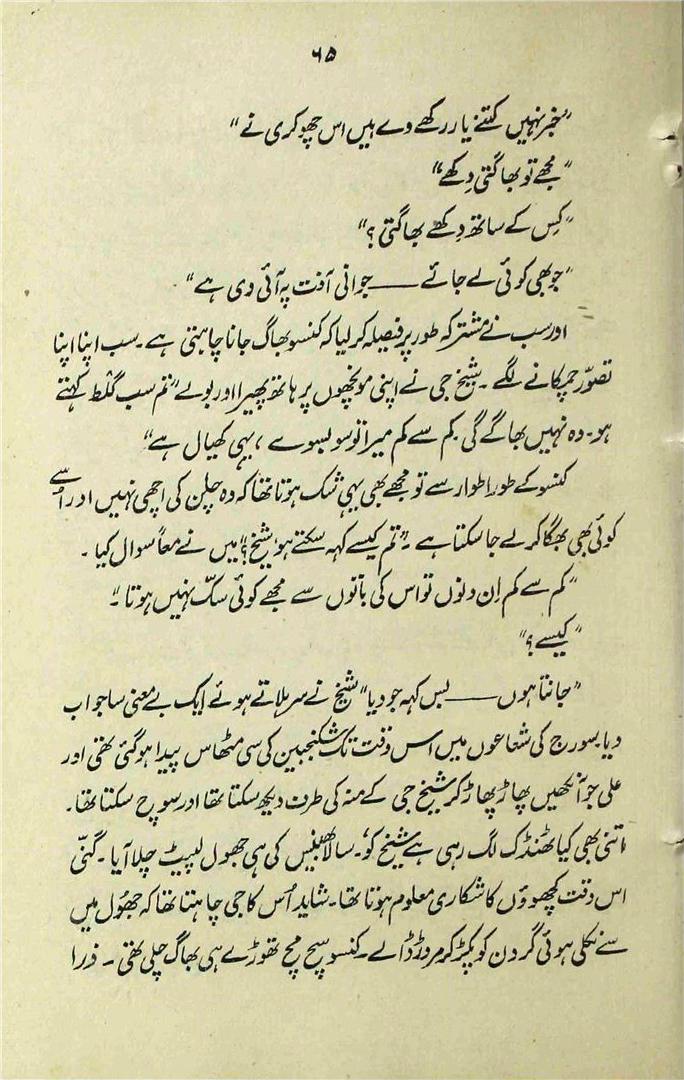 ۶۵
”خبر نہیں کتنے یار رکھے دے ہیں اس چھوکری نے“
”مجھے تو بھاگتی دِکھے“
”کِس کے ساتھ دِکھے بھاگتی؟“
”جو بھی کوئی لے جائے —— جوانی آفت پہ آئی دی ہے“
اور سب نے مشترکہ طور پر فیصلہ کر لیا کہ کنسو بھاگ جانا چاہتی ہے۔ سب اپنا اپنا
تصوّر چمکانے لگے۔ شیخ جی نے اپنی مونچھوں پر ہاتھ پھیرا اور بولے ”تم سب گلط کہتے
ہو۔ وہ نہیں بھاگے گی۔ کم سے کم میرا تو سو بسوے، یہی کھیال ہے“
کنسو کے طور اطوار سے تو مجھے بھی یہی شک ہوتا تھا کہ وہ چلن کی اچھی نہیں اور اُسے
کوئی بھی بھگا کر لے جا سکتا ہے۔ ”تم کیسے کہہ سکتے ہو، شیخ؟“ میں نے معاً سوال کیا۔
”کم سے کم اِن دنوں تو اس کی باتوں سے مجھے کوئی سکّ نہیں ہوتا۔“
”کیسے؟“
”جانتا ہوں —— بس کہہ جو دیا“ شیخ نے سر ہلاتے ہوئے ایک بے معنی سا جواب
دیا۔ سورج کی شعاعوں میں اس وقت تک شکنجبین کی سی مٹھاس پیدا ہو گئی تھی اور
علی جو آنکھیں پھاڑ پھاڑ کر شیخ جی کے منہ کی طرف دیکھ سکتا تھا اور سوچ سکتا تھا۔
اتنی بھی کیا ٹھنڈک لگ رہی ہے شیخ کو، سالا بھینس کی ہی جھول لپیٹ چلا آیا۔ گنّی
اس وقت کچھوؤں کا شکاری معلوم ہوتا تھا۔ شاید اُس کا جی چاہتا تھا کہ جھُول میں
سے نکلی ہوئی گردن کو پکڑ کر مروڑ ڈالے۔ کنسو سچ مچ تھوڑے ہی بھاگ چلی تھی۔ ذرا